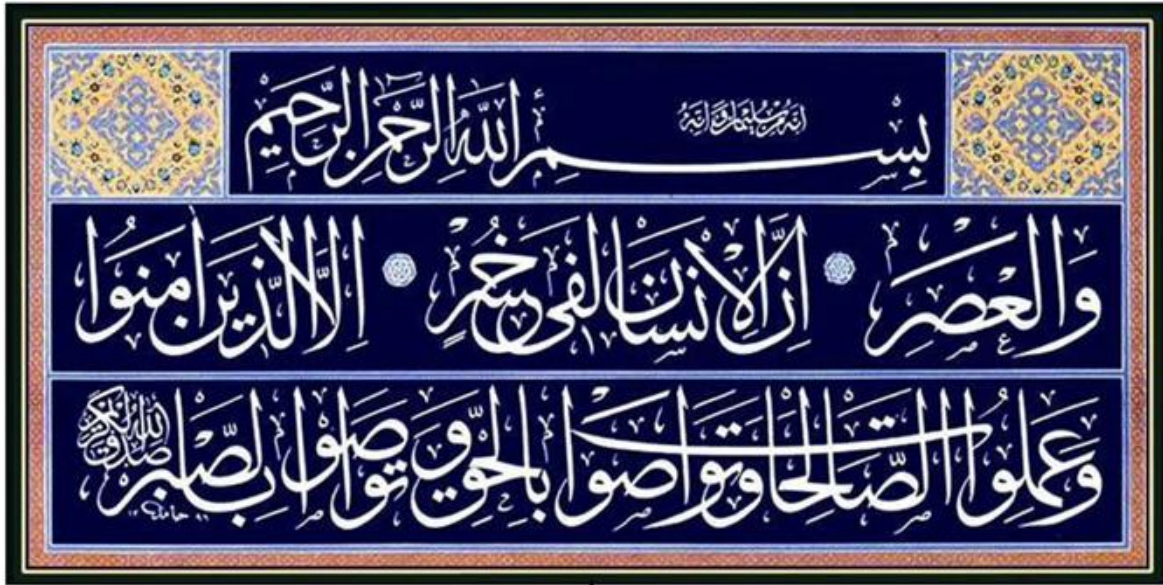 إنه من سليمان وإنه
بِسْمِ اللهِ الرَّحْمٰنِ الرَّحِيْمِ
وَالْعَصْرِ اِنَّ الْاِنْسَانَ لَفِى خُسْرٍ اِلَّا الَّذِيْنَ اٰمَنُوْا
وَعَمِلُوا الصَّالِحَاتِ وَتَوَاصَوْا بِالْحَقِّ وَتَوَاصَوْا بِالصَّبْرِ
حامد